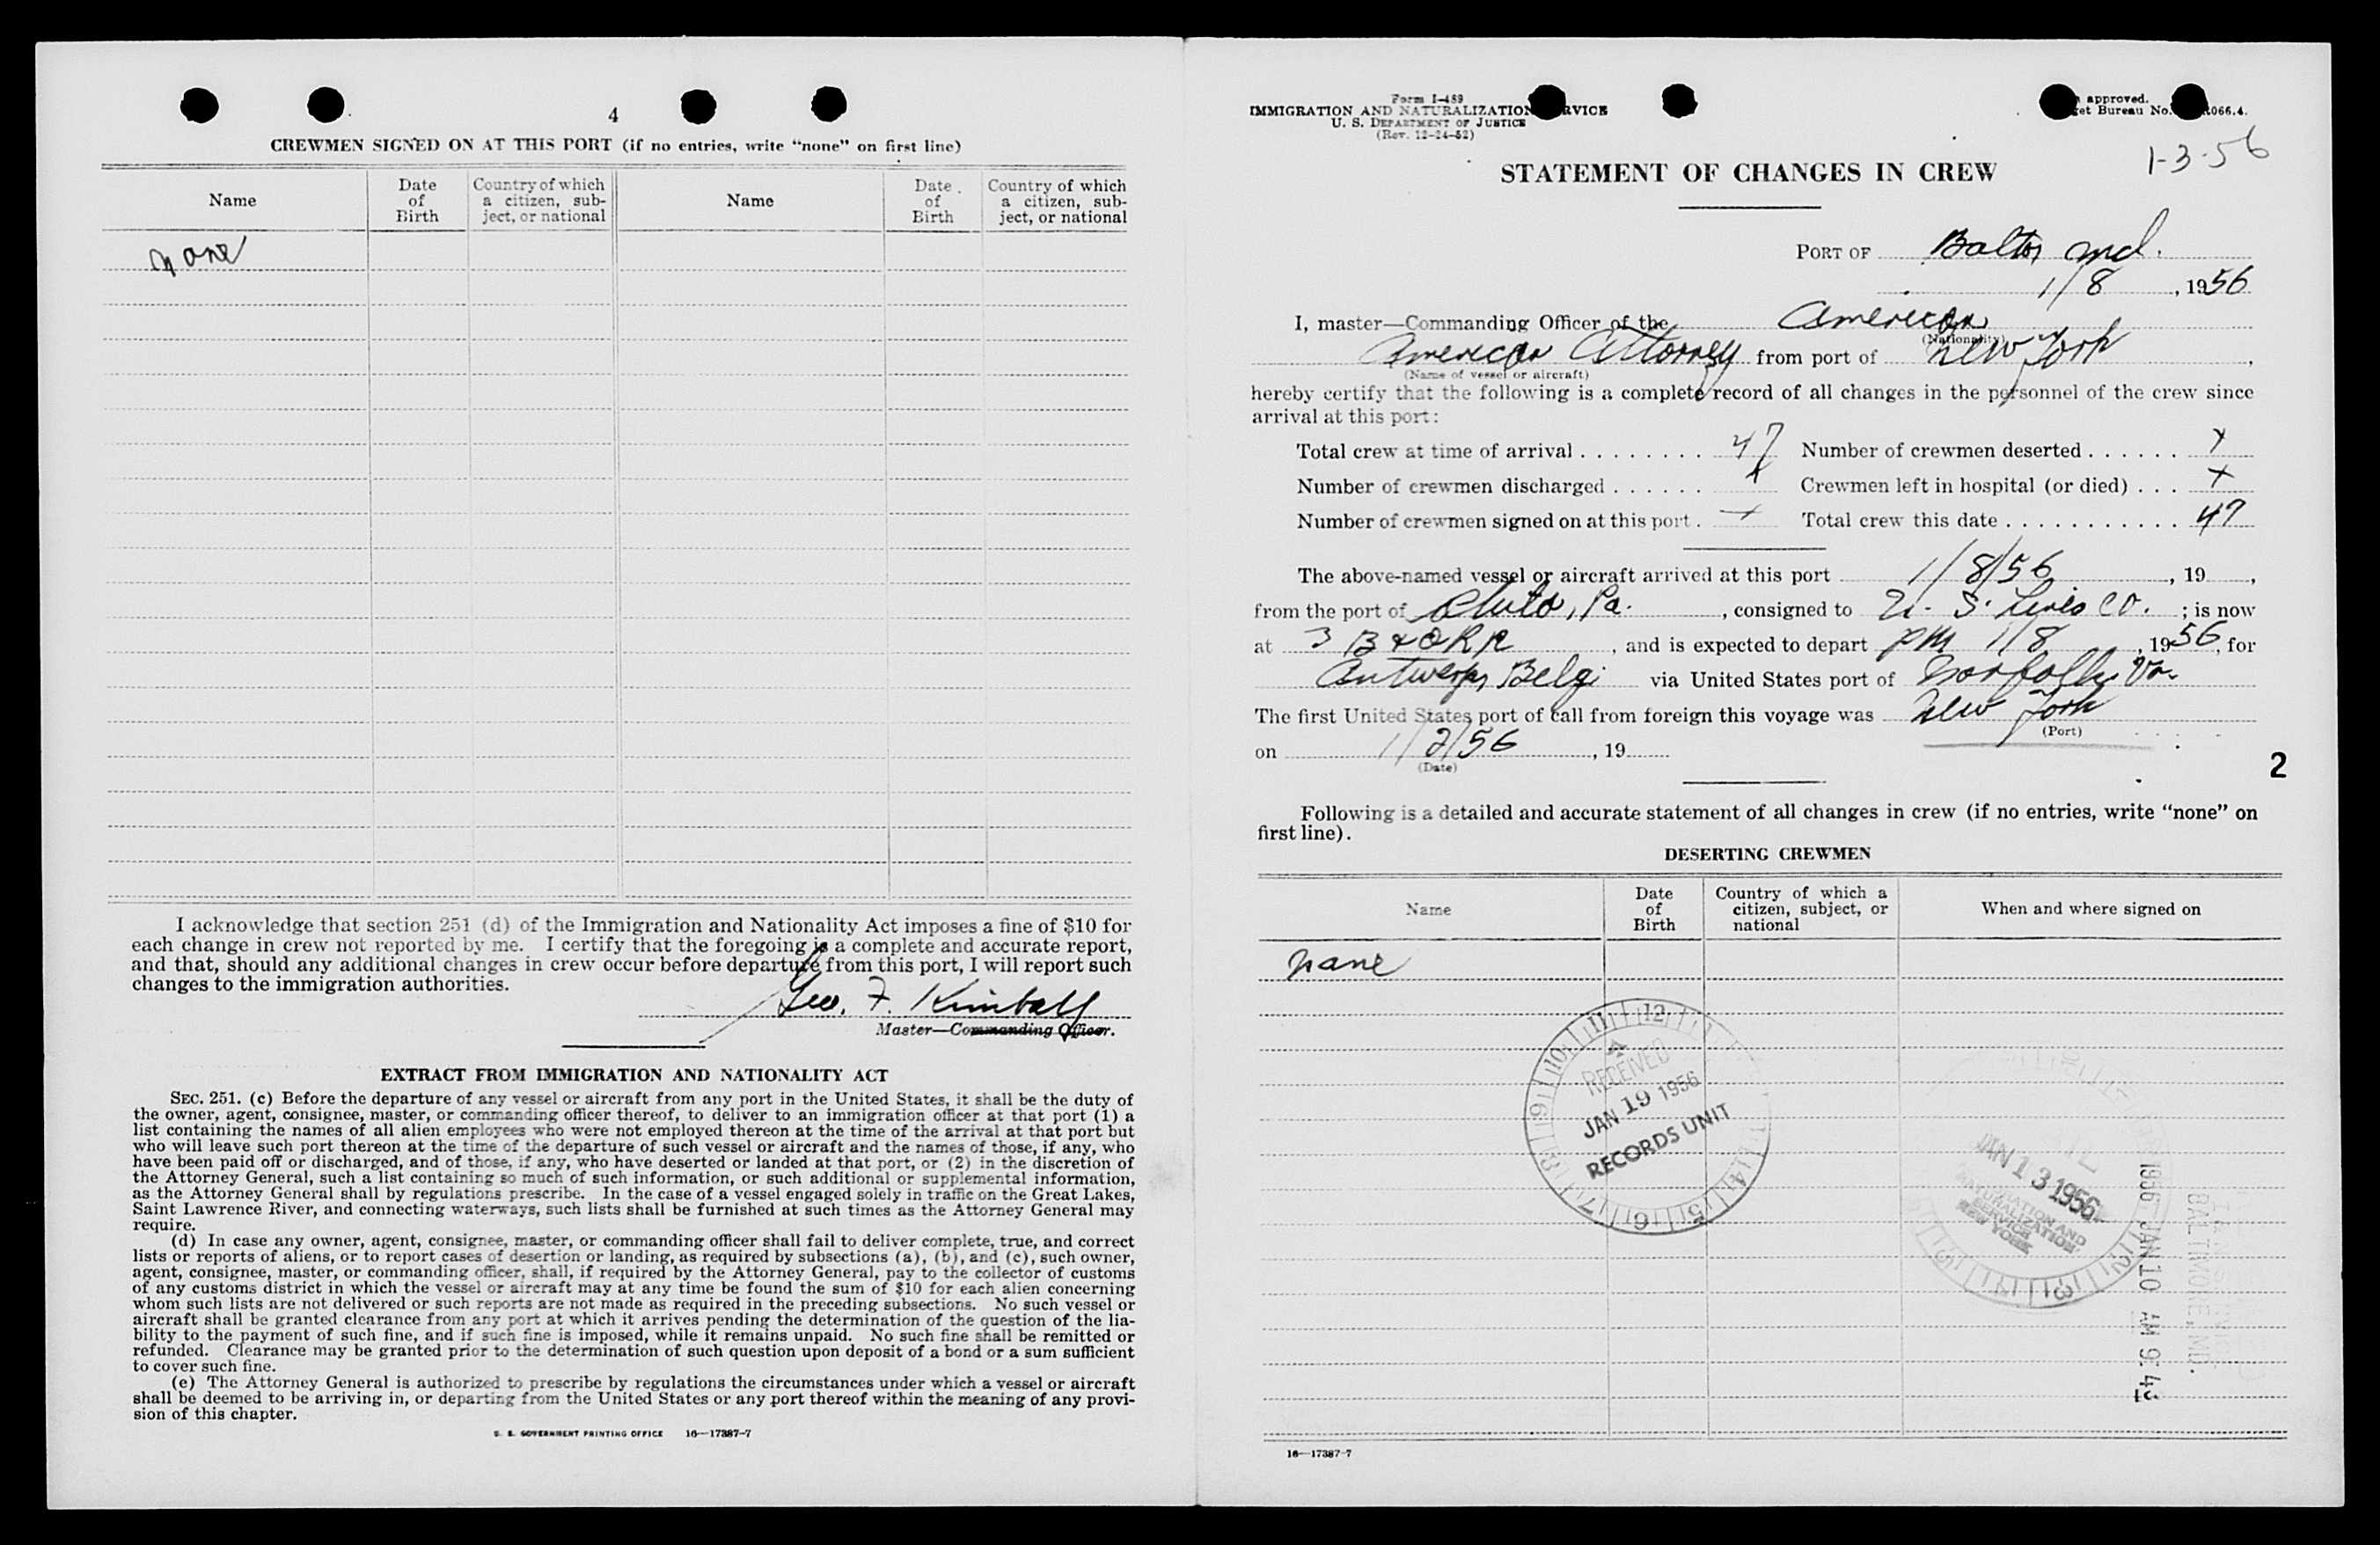 4
CREWMEN SIGNED ON AT THIS PORT (if no entries, write "none" on first line)
Name
Date of Birth
Country of which a citizen, subject, or national
Name
Date of Birth
Country of which a citizen, sub-ject, or national
none
I acknowledge that section 251 (d) of the Immigration and Nationality Act imposes a fine of $10 for
each change in crew not reported by me. I certify that the foregoing is a complete and accurate report,
and that, should any additional changes in crew occur before departure from this port, I will report such
changes to the immigration authorities.
Geo. F. Kimball
Master—Commanding Officer.
EXTRACT FROM IMMIGRATION AND NATIONALITY ACT
SEC. 251. (c) Before the departure of any vessel or aircraft from any port in the United States, it shall be the duty of
the owner, agent, consignee, master, or commanding officer thereof, to deliver to an immigration officer at that port (1) a
list containing the names of all alien employees who were not employed thereon at the time of the arrival at that port but
who will leave such port thereon at the time of the departure of such vessel or aircraft and the names of those, if any, who
have been paid off or discharged, and of those, if any, who have deserted or landed at that port, or (2) in the discretion of
the Attorney General, such a list containing so much of such information, or such additional or supplemental information,
as the Attorney General shall by regulations prescribe. In the case of a vessel engaged solely in traffic on the Great Lakes,
Saint Lawrence River, and connecting waterways, such lists shall be furnished at such times as the Attorney General may
require.
(d) In case any owner, agent, consignee, master, or commanding officer shall fail to deliver complete, true, and correct
lists or reports of aliens, or to report cases of desertion or landing, as required by subsections (a), (b), and (c), such owner,
agent, consignee, master, or commanding officer, shall, if required by the Attorney General, pay to the collector of customs
of any customs district in which the vessel or aircraft may at any time be found the sum of $10 for each alien concerning
whom such lists are not delivered or such reports are not made as required in the preceding subsections. No such vessel or
aircraft shall be granted clearance from any port at which it arrives pending the determination of the question of the lia-
bility to the payment of such fine, and if such fine is imposed, while it remains unpaid. No such fine shall be remitted or
refunded. Clearance may be granted prior to the determination of such question upon deposit of a bond or a sum sufficient
to cover such fine.
(e) The Attorney General is authorized to prescribe by regulations the circumstances under which a vessel or aircraft
shall be deemed to be arriving in, or departing from the United States or any port thereof within the meaning of any provi-
sion of this chapter.
U. S. GOVERNMENT PRINTING OFFICE 16—17387-7
Form I-489
IMMIGRATION AND NATURALIZATION RVICE
U. S. DEPARTMENT OF JUSTICE
(Rev. 12-24-52)
approved.
et Bureau No. 066.4.
1-3-56
STATEMENT OF CHANGES IN CREW
PORT OF Balto, md.
1/8, 1956
I, master—Commanding Officer of the American
(Nationality)
American Attorney from port of New York,
(Name of vessel or aircraft)
hereby certify that the following is a complete record of all changes in the personnel of the crew since
arrival at this port:
Total crew at time of arrival . . . . . . . . 47 Number of crewmen deserted . . . . . . x
Number of crewmen discharged . . . . . . x Crewmen left in hospital (or died) . . . x
Number of crewmen signed on at this port . x Total crew this date . . . . . . . . . . . 47
The above-named vessel or aircraft arrived at this port 1/8/56, 19 ,
from the port of Pa., consigned to U. S. Lines Co. ; is now
at 3 B & O RR, and is expected to depart PM 1/8, 1956, for
Antwerp, Belgi via United States port of Norfolk, Va.
The first United States port of call from foreign this voyage was New York
(Port)
on 1/2/56, 19
(Date)
2
Following is a detailed and accurate statement of all changes in crew (if no entries, write "none" on
first line).
DESERTING CREWMEN
Name
Date of Birth
Country of which a citizen, subject, or national
When and where signed on
none
RECEIVED
JAN 19 1956
RECORDS UNIT
JAN 13 1956
NATURALIZATION
SERVICE
NEW YORK
1956 JAN 10 AM 9:43
BALTIMORE, MD.
16—17387-7